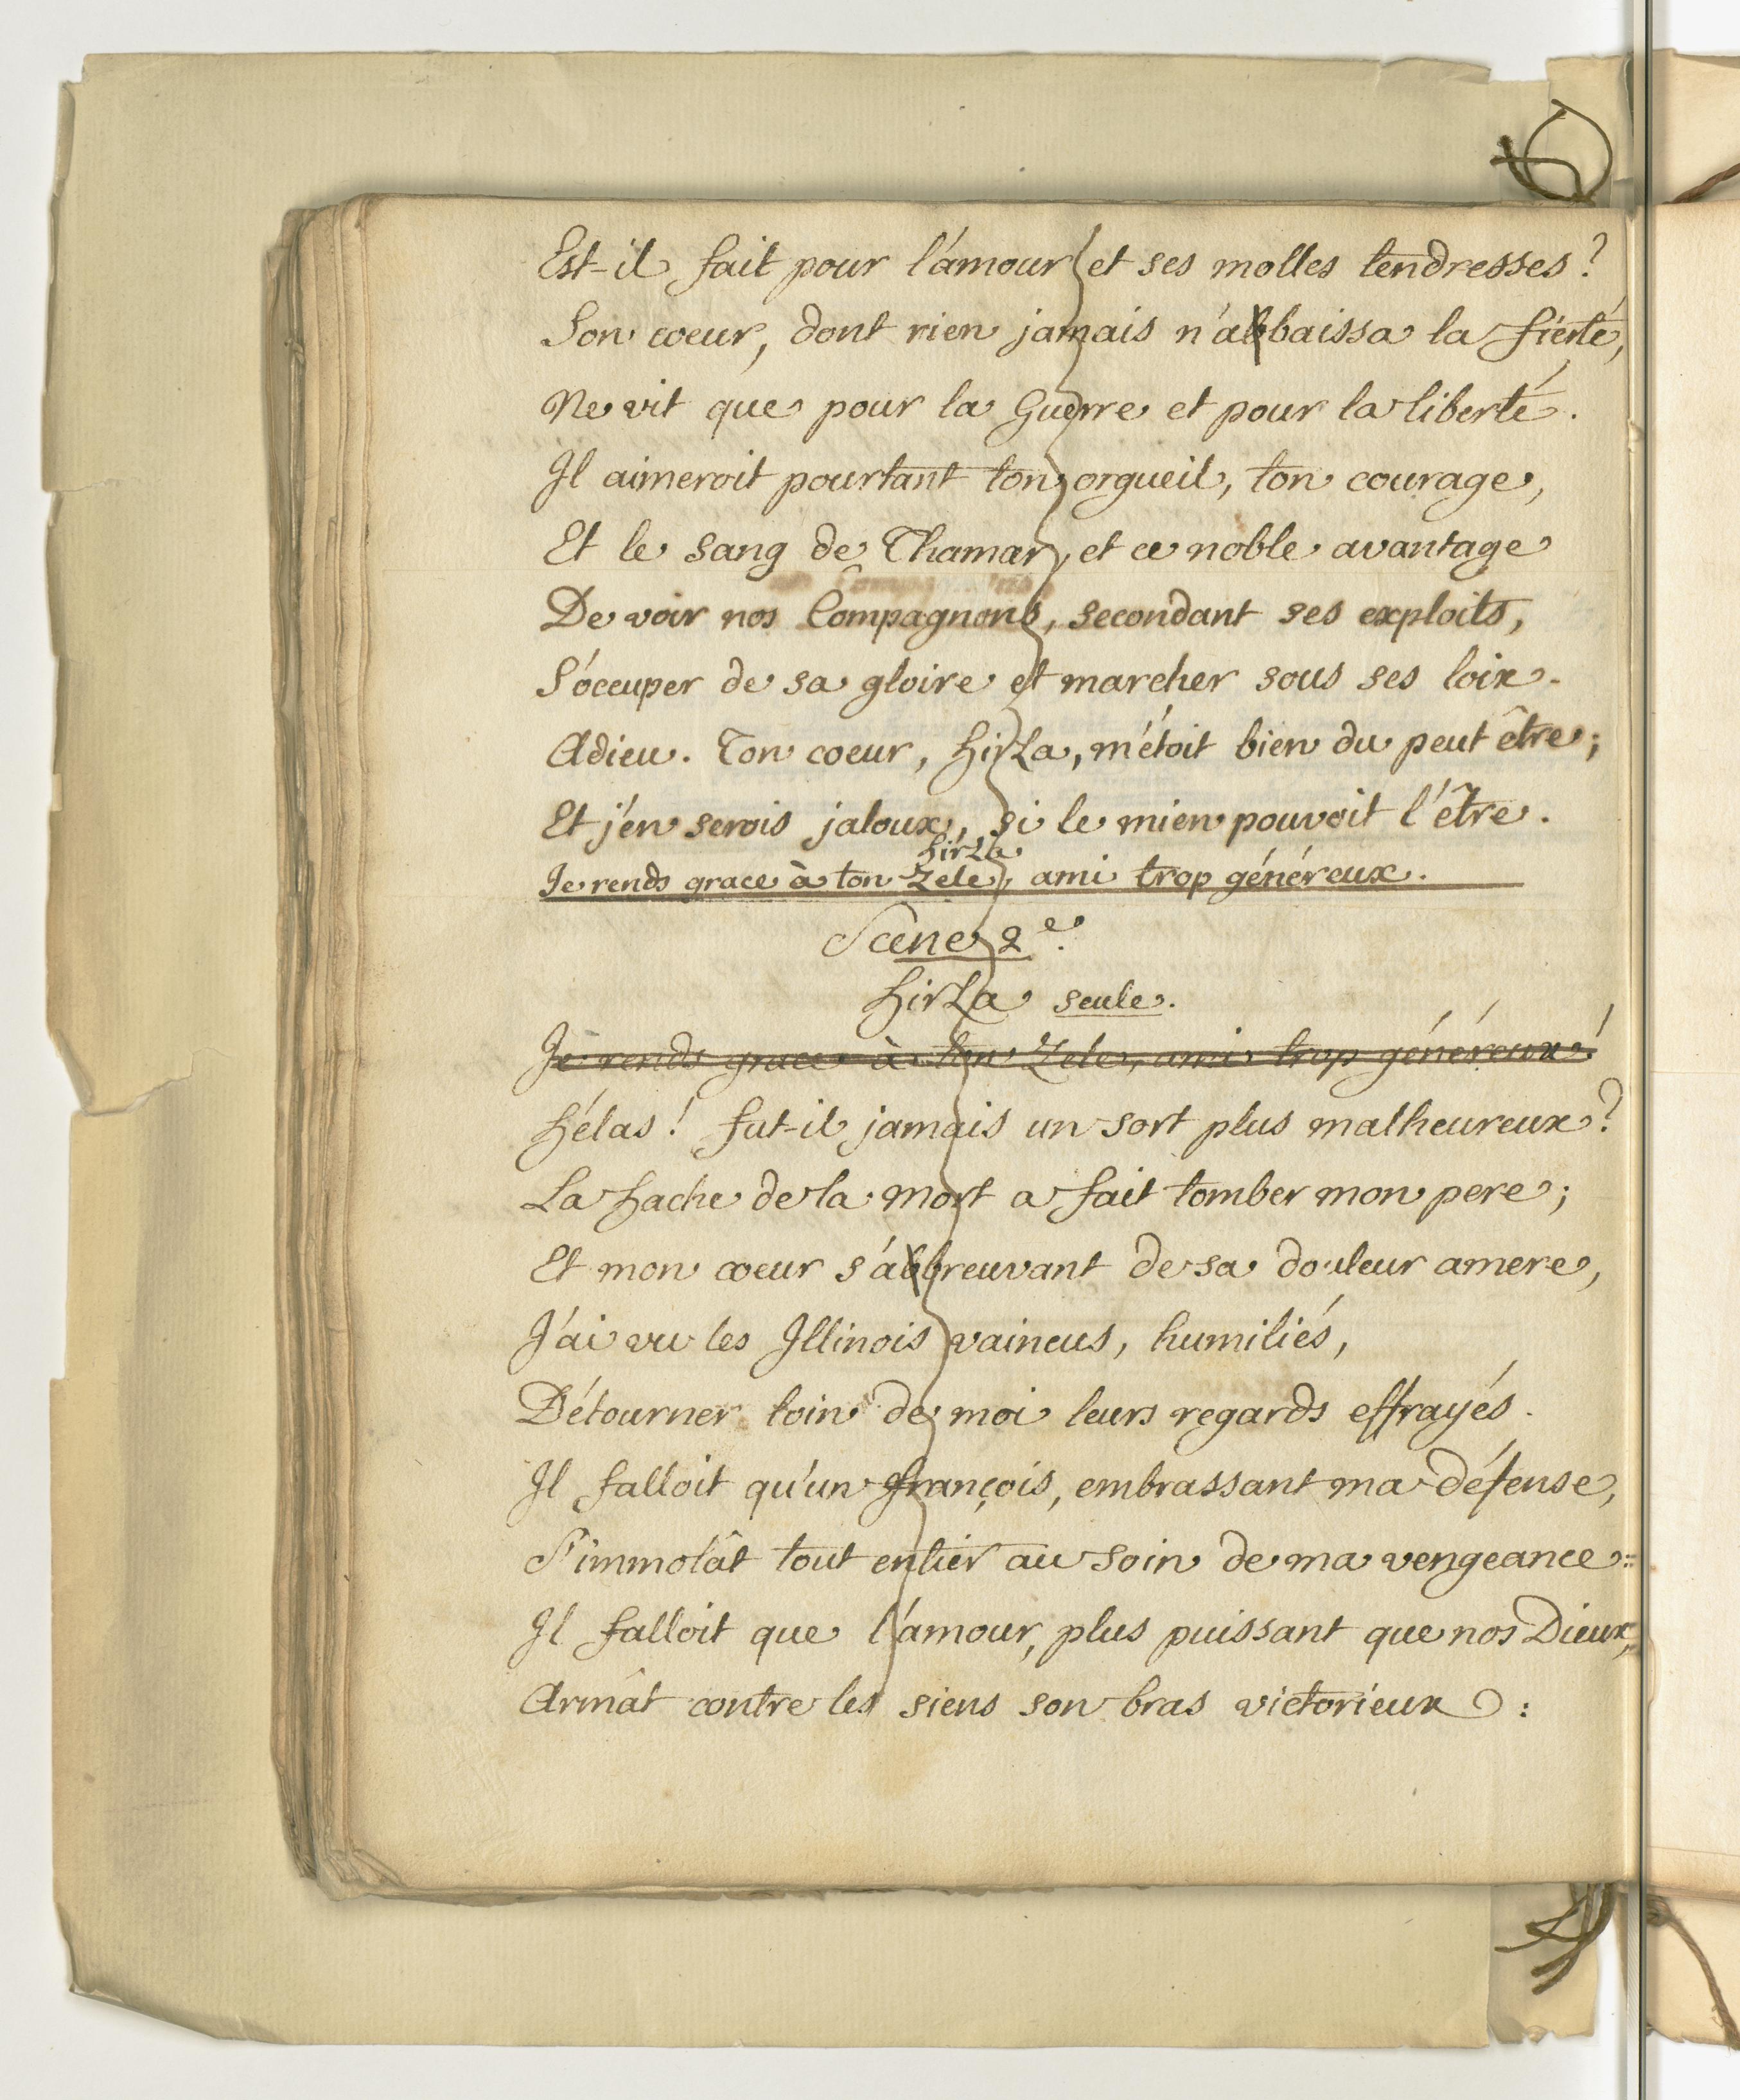 Est-il fait pour l'amour et ses molles tendresses?
Son coeur, dont rien jamais n'abbaissa la fierté,
Ne vit que pour la Guerre et pour la liberté.
Il aimeroit pourtant ton orgueil, ton courage,
Et le sang de Thamar, et ce noble avantage
De voir nos Compagnons, secondant ses exploits,
S'occuper de sa gloire et marcher sous ses loix.
Adieu. Ton coeur, hirza, m'étoit bien du peut être;
Et j'en serois jaloux, si le mien pouvoit l'être.
hirza
Je rends grace à ton Zele, ami trop généreux.
Scene 2e.
hirza seule.
Je rends grace à ton Zele, ami trop généreux!
hélas! fut-il jamais un sort plus malheureux?
La hache de la mort a fait tomber mon pere;
Et mon coeur s'abbreuvant de sa douleur amere,
J'ai vu les Illinois vaincus, humiliés,
Détourner loin de moi leurs regards effrayés.
Il falloit qu'un françois, embrassant ma défense,
S'immolât tout entier au soin de ma vengeance:
Il falloit que l'amour, plus puissant que nos Dieux,
Armât contre les siens son bras victorieux: